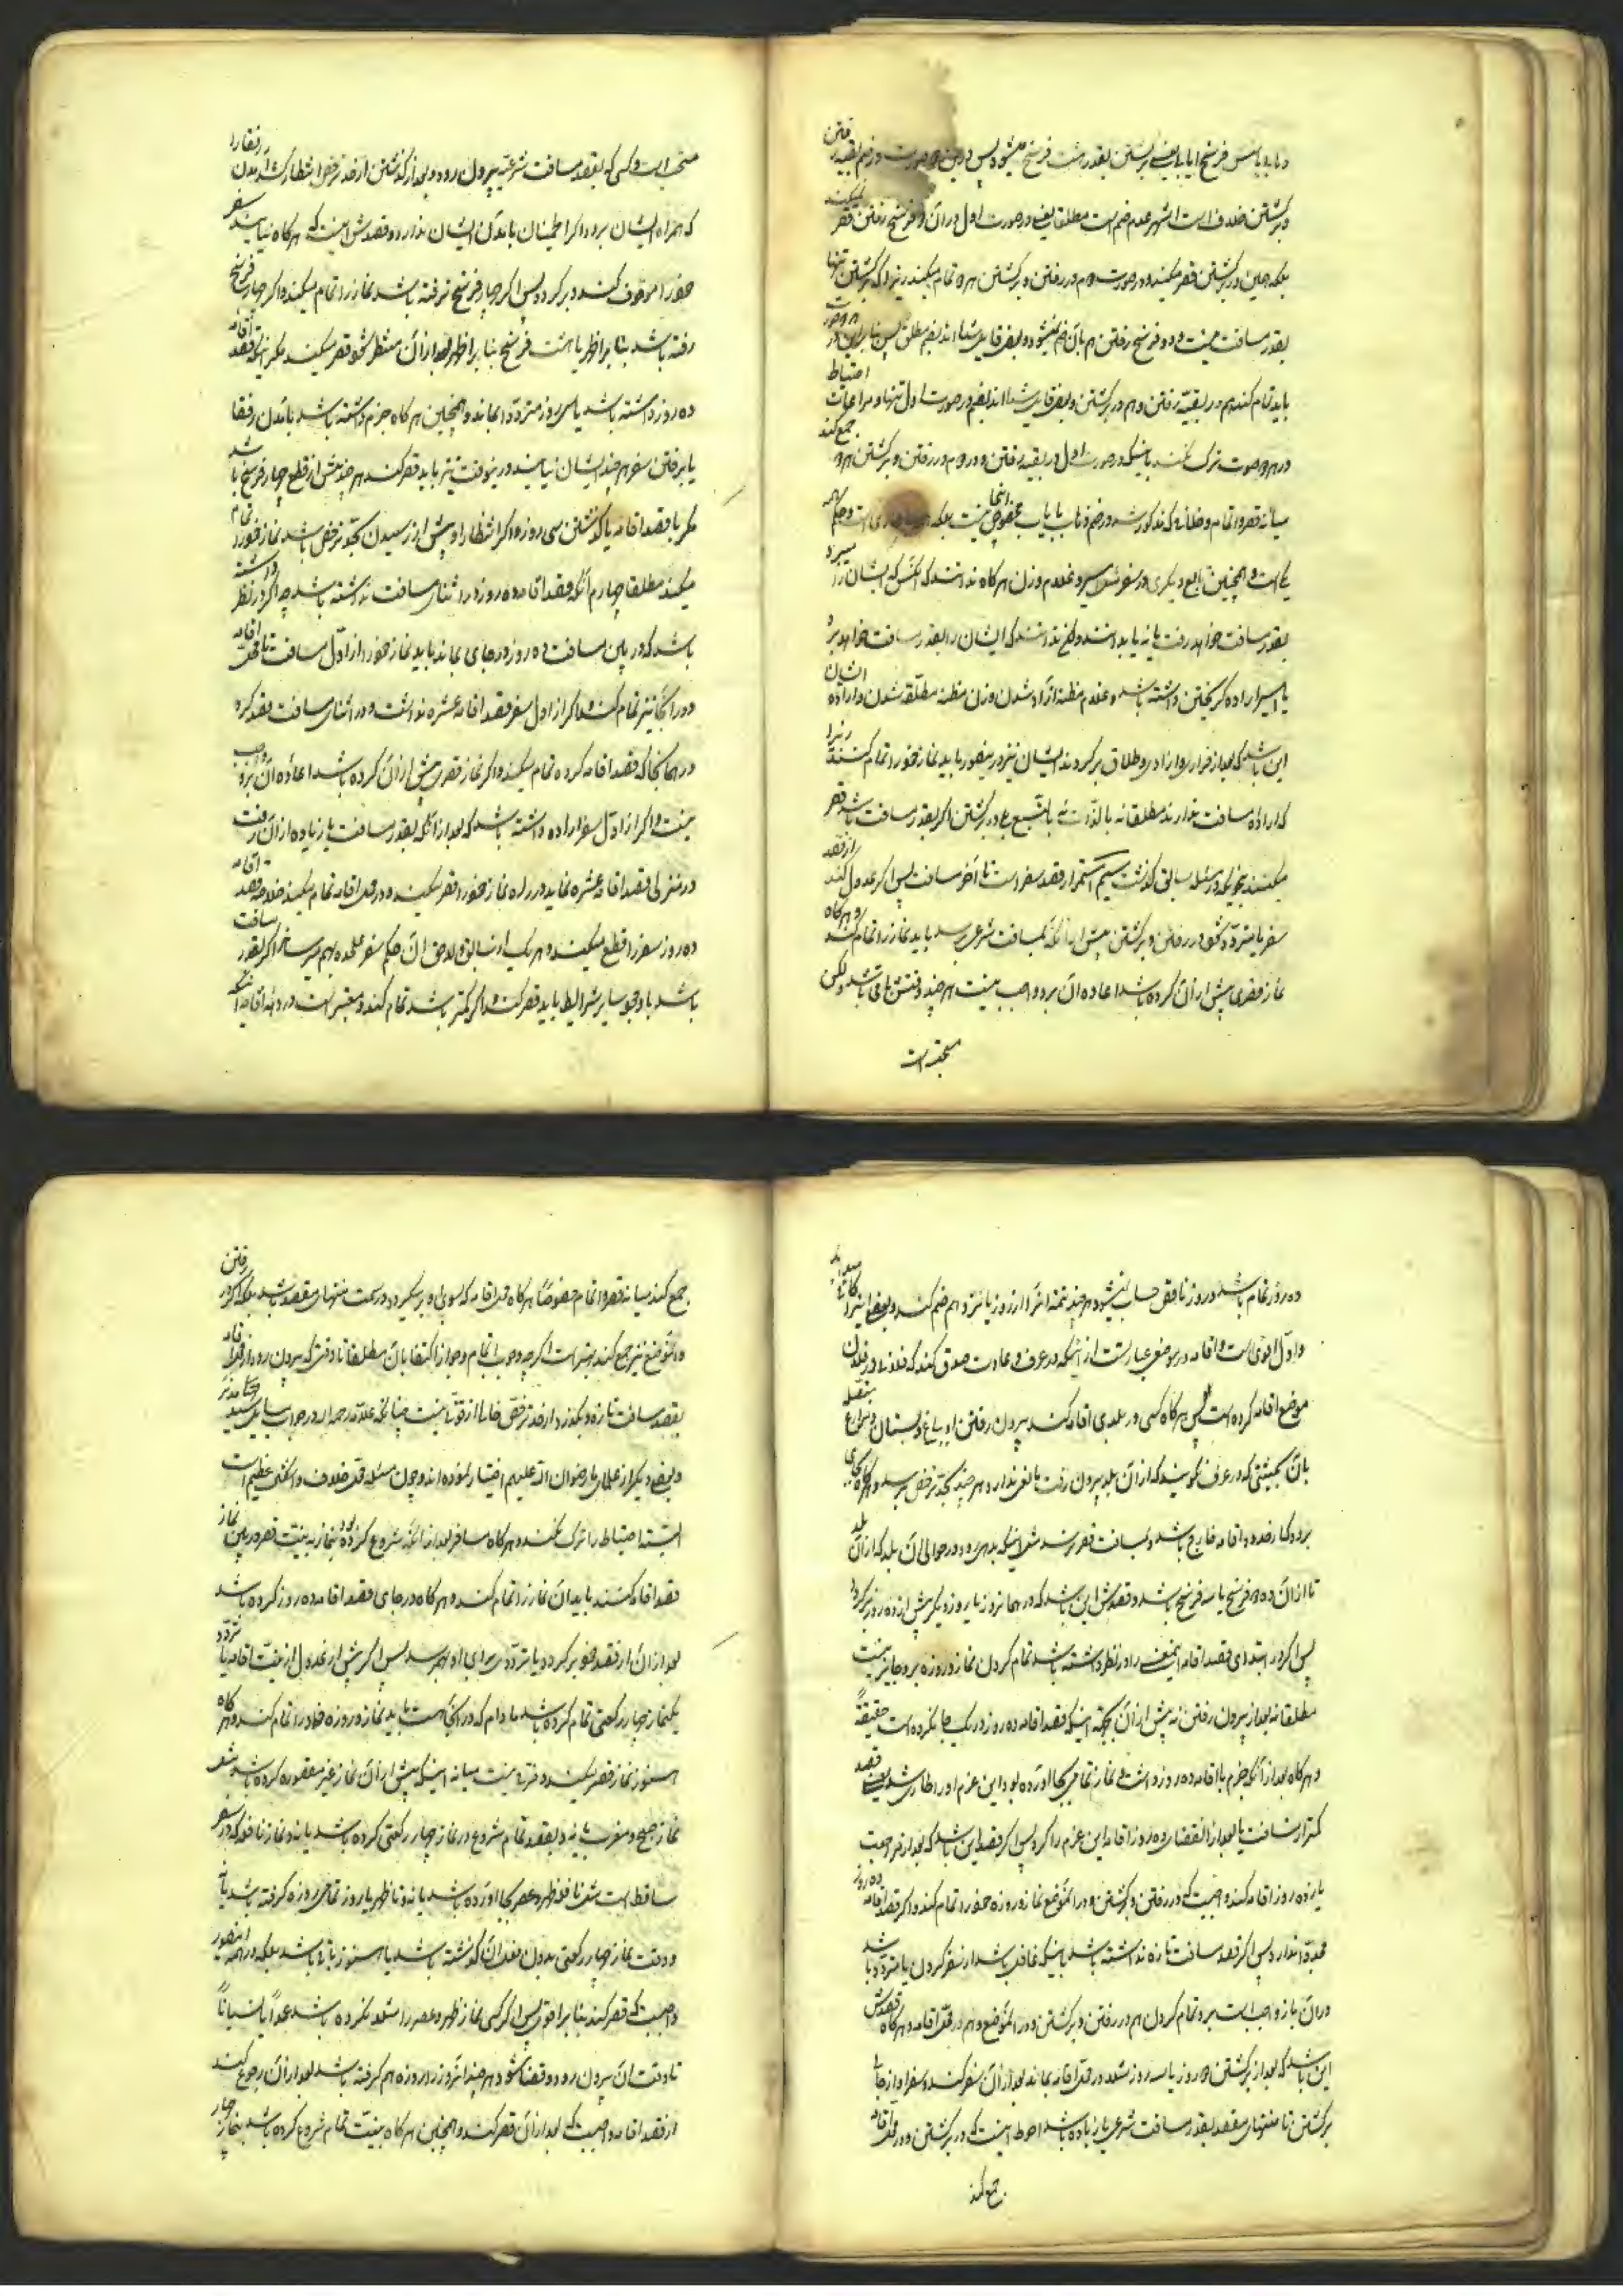 و برگشتن خلاف است اشهر عدم ضم است مطلقا یعنی در صورت اول در آن دو فرسخ رفتن قصر
بلکه همین در برگشتن قصر میکند و در صورت دوم در رفتن و برگشتن هر دو تمام میکند زیرا که برگشتن تنها
بقدر مسافت نیست و دو فرسخ رفتن هم بآن ضم نمیشود و بعضی قایل شده اند بضم مطلق پس بنابراین در
باید تمام کند هم در بقیه رفتن و هم در برگشتن و بعضی قایل شده اند بضم در صورت اول تنها و مراعات احتیاط
در هر دو صورت ترک نکند باینکه در صورت اول در بقیه رفتن و در دوم در رفتن و برگشتن هر دو جمع کند
میانه قصر و اتمام و خلافی که مذکور شد در ضم ذهاب با ایاب مخصوص اینجا نیست بلکه
یکی است و همچنین تابع دیگری در سفر مثل اسیر و غلام و زن هر گاه ندانند که آنکس که ایشان را میبرد
بقدر مسافت خواهد رفت یا نه یا بدانند و لیکن ندانند که ایشان را بقدر مسافت خواهد برد
یا اسیر اراده گریختن داشته باشد و غلام مظنه آزاد شدن و زن مظنه مطلقه شدن و اراده ایشان
این باشد که بعد از فرار و آزادی و طلاق برگردند ایشان نیز در اینصور باید نماز خود را تمام کنند زیرا
که اراده مسافت ندارند مطلقا نه بالذات نه بالتبع و در برگشتن اگر بقدر مسافت باشد قصر
میکنند بنحویکه در مسئله سابق گذشت سیم استمرار قصد سفر است تا آخر مسافت پس اگر عدول کند از قصد
سفر یا متردد شود در رفتن و برگشتن پیش از آنکه بمسافت شرعی برسد باید نماز را تمام کند و هر گاه
نماز قصری پیش از آن کرده باشد اعاده آن بر او واجب نیست هر چند وقتش باقی باشد و لیکن
مستحب است
مستحب است و کسی که بقصد مسافت شرعیه بیرون رود و بعد از گذشتن از حد ترخص انتظار کشد آمدن رفقا را
که همراه ایشان برود اگر اطمینان بآمدن ایشان ندارد و قصدش اینست که هر گاه نیایند سفر
خود را موقوف کند و برگردد پس اگر چهار فرسخ نرفته باشد نماز را تمام میکند و اگر چهار فرسخ
رفته باشد بنا بر اظهر یا هشت فرسخ بنا بر اظهر بعد از آن منتظر شود قصر میکند مگر اینکه قصد اقامه
ده روز داشته باشد یا سی روز متردد بماند و همچنین هر گاه جزم داشته باشد بآمدن رفقا
یا برفتن سفر هر چند ایشان نیایند در اینوقت نیز باید قصر کند هر چند پیش از قطع چهار فرسخ باشد
مگر با قصد اقامه یا گذشتن سی روز و اگر انتظار او پیش از رسیدن بحد ترخص باشد نماز خود را تمام
میکند مطلقا چهارم آنکه قصد اقامه ده روز در اثنای مسافت نداشته باشد چه اگر در نظر داشته
باشد که در بین مسافت ده روز در جای بماند باید نماز خود را از اول مسافت تا محل اقامه
و در آنجا نیز تمام کند و اگر از اول سفر قصد اقامه عشره نداشت و در اثنای مسافت قصد کرد
در همانجا که قصد اقامه کرده تمام میکند و اگر نماز قصری پیش از آن کرده باشد اعاده آن بر او واجب
نیست و اگر از اول سفر اراده داشته باشد که بعد از آنکه بقدر مسافت یا زیاده از آن رفت
در منزلی قصد اقامه عشره نماید در راه نماز خود را قصر میکند و در محل اقامه تمام میکند خلاصه قصد اقامه
ده روز سفر را قطع میکند و هر یک از سابق و لاحق آن حکم سفر علیحده بهم میرساند اگر بقدر مسافت
باشد با وجود سایر شرایط باید قصر کند و اگر کمتر باشد تمام کند و معتبر است در ده روز اقامه اینکه
ده روز تمام باشد و روز ناقص حساب نمیشود هر چند تتمه آنرا از روز یازدهم ضم کند و بعضی اینرا کافی
و اول اقوی است و اقامه در موضعی عبارتست از اینکه در عرف و عادت صدق کند که فلانه در فلان
موضع اقامه کرده است پس هر گاه کسی در بلدی اقامه کند بیرون رفتن او بباغ و بستان و مزارع متصله
بآن بحیثیتی که در عرف نگویند که از آن بلد بیرون رفت مانعی ندارد هر چند بحد ترخص برسد و هر گاه بجای
برود که از حدود اقامه خارج باشد و بمسافت قصر نرسد مثل اینکه بدهی رود در حوالی آن بلد که از آن بلد
تا آن ده دو فرسخ یا سه فرسخ باشد و قصدش این باشد که در همانروز یا روز دیگر پیش از ده روز برگردد
پس اگر در ابتدای قصد اقامه اینمعنی را در نظر داشته باشد تمام کردن نماز و روزه بر او جایز نیست
مطلقا نه بعد از بیرون رفتن نه پیش از آن بجهة اینکه قصد اقامه ده روز در یک جا نکرده است حقیقة
و هر گاه بعد از آنکه جزم باقامه ده روز داشت و نماز تمامی بجا آورده بود این عزم او را طاری شد یعنی قصد
کمتر از مسافت یا بعد از انقضای ده روز اقامه این عزم را کرد پس اگر قصد این باشد که بعد از مراجعت
باز ده روز اقامه کند واجبست که در رفتن و برگشتن و در آنموضع نماز و روزه خود را تمام کند و اگر قصد اقامه ده روز
مجددا ندارد پس اگر قصد مسافت تازه نداشته باشد باینکه غافل باشد از سفر کردن یا متردد باشد
در آن باز واجب است بر او تمام کردن هم در رفتن و برگشتن و در آنموضع و هم در محل اقامه و هر گاه قصدش
این باشد که بعد از برگشتن دو روز یا سه روز مثلا در محل اقامه بماند بعد از آن سفر کند و سفر او از جای
برگشتن تا منتهای مقصد بقدر مسافت شرعی یا زیاده باشد احوط اینست که در برگشتن و در محل اقامه
جمع کند
جمع کند میانه قصر و اتمام خصوصا هر گاه محل اقامه که بسوی او بر میگردد در سمت منتهای مقصد باشد بلکه اگر در رفتن
و در آنموضع نیز جمع کند بهتر است اگر چه وجوب اتمام و جواز اکتفا بآن مطلقا تا وقتی که بیرون رود از محل اقامه
بقصد مسافت تازه و بگذرد از حد ترخص خالی از قوة نیست چنانکه علامه رحمه الله در جواب سایل سید
و بعضی دیگر از علمای ما رضوان الله علیهم اختیار نموده اند و چون مسئله محل خلاف و اشکال عظیم است
البته احتیاط را ترک نکنند و هر گاه مسافر بعد از آنکه شروع کرده بود بنماز به نیت قصر در بین نماز
قصد اقامه کند باید آن نماز را تمام کند و هر گاه در جای قصد اقامه ده روز کرده باشد
بعد از آن از قصد خود برگردد یا تردد برای او بهم رسد پس اگر پیش از عدول از نیت اقامه یا تردد
یکنماز چهار رکعتی تمام کرده باشد مادام که در آنجا هست باید نماز و روزه خود را تمام کند و هر گاه
هنوز نماز قصر میکند و فرقی نیست میانه اینکه پیش از آن نماز غیر مقصوره کرده باشد مثل
نماز صبح و مغرب یا نه و بقصد تمام شروع در نماز چهار رکعتی کرده باشد یا نه و نماز نافله که در سفر
ساقط است مثل نافله ظهر و عصر بجا آورده باشد یا نه و تا ظهر یا روز تمامی روزه گرفته باشد یا نه
و وقت نماز چهار رکعتی بدون فعل آن گذشته باشد یا هنوز باقی باشد بلکه در همه اینصور
واجبست که قصر کند بنا بر اقوی پس اگر کسی نماز ظهر و عصر را مثلا نکرده باشد عمدا یا نسیانا
تا وقت آن بیرون رود و قضا شود هر چند آنروز را روزه هم گرفته باشد بعد از آن رجوع کند
از قصد اقامه واجبست که بعد از آن قصر کند و همچنین هر گاه به نیت تمام شروع کرده باشد بنماز چهار